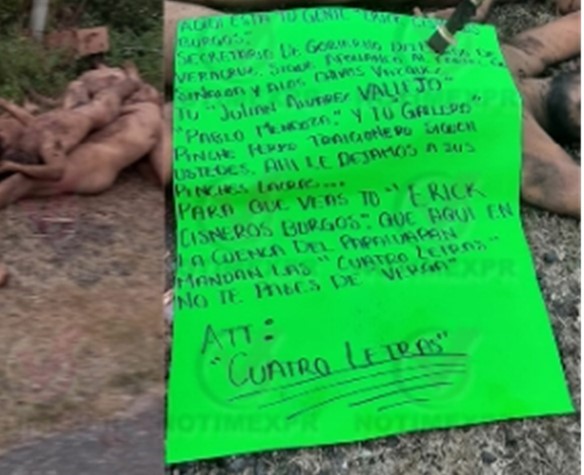 AQUI ESTA TU GENTE "ERICK CISNEROS
BURGOS"
SECRETARIO DE GOBIERNO DEL DE
VERACRUZ. SIGUE APOYANDO AL
SINALOA Y A LOS CHIVAS VAZQUEZ
TU "JULIAN ALVAREZ VALLEJO"
"PABLO MENDOZA" Y TU GALLERO"
PINCHE PERRO TRAICIONERO SIGUEN
USTEDES. AHI LE DEJAMOS A SUS
PINCHES LACRAS...
PARA QUE VEAS TU "ERICK
CISNEROS BURGOS". QUE AQUI EN
LA CUENCA DEL PAPALUAPAN
MANDAN LAS "CUATRO LETRAS"
NO TE PASES DE VERGA"
ATT:
"CUATRO LETRAS"
NOTIMEXPR
NOTIMEXPR